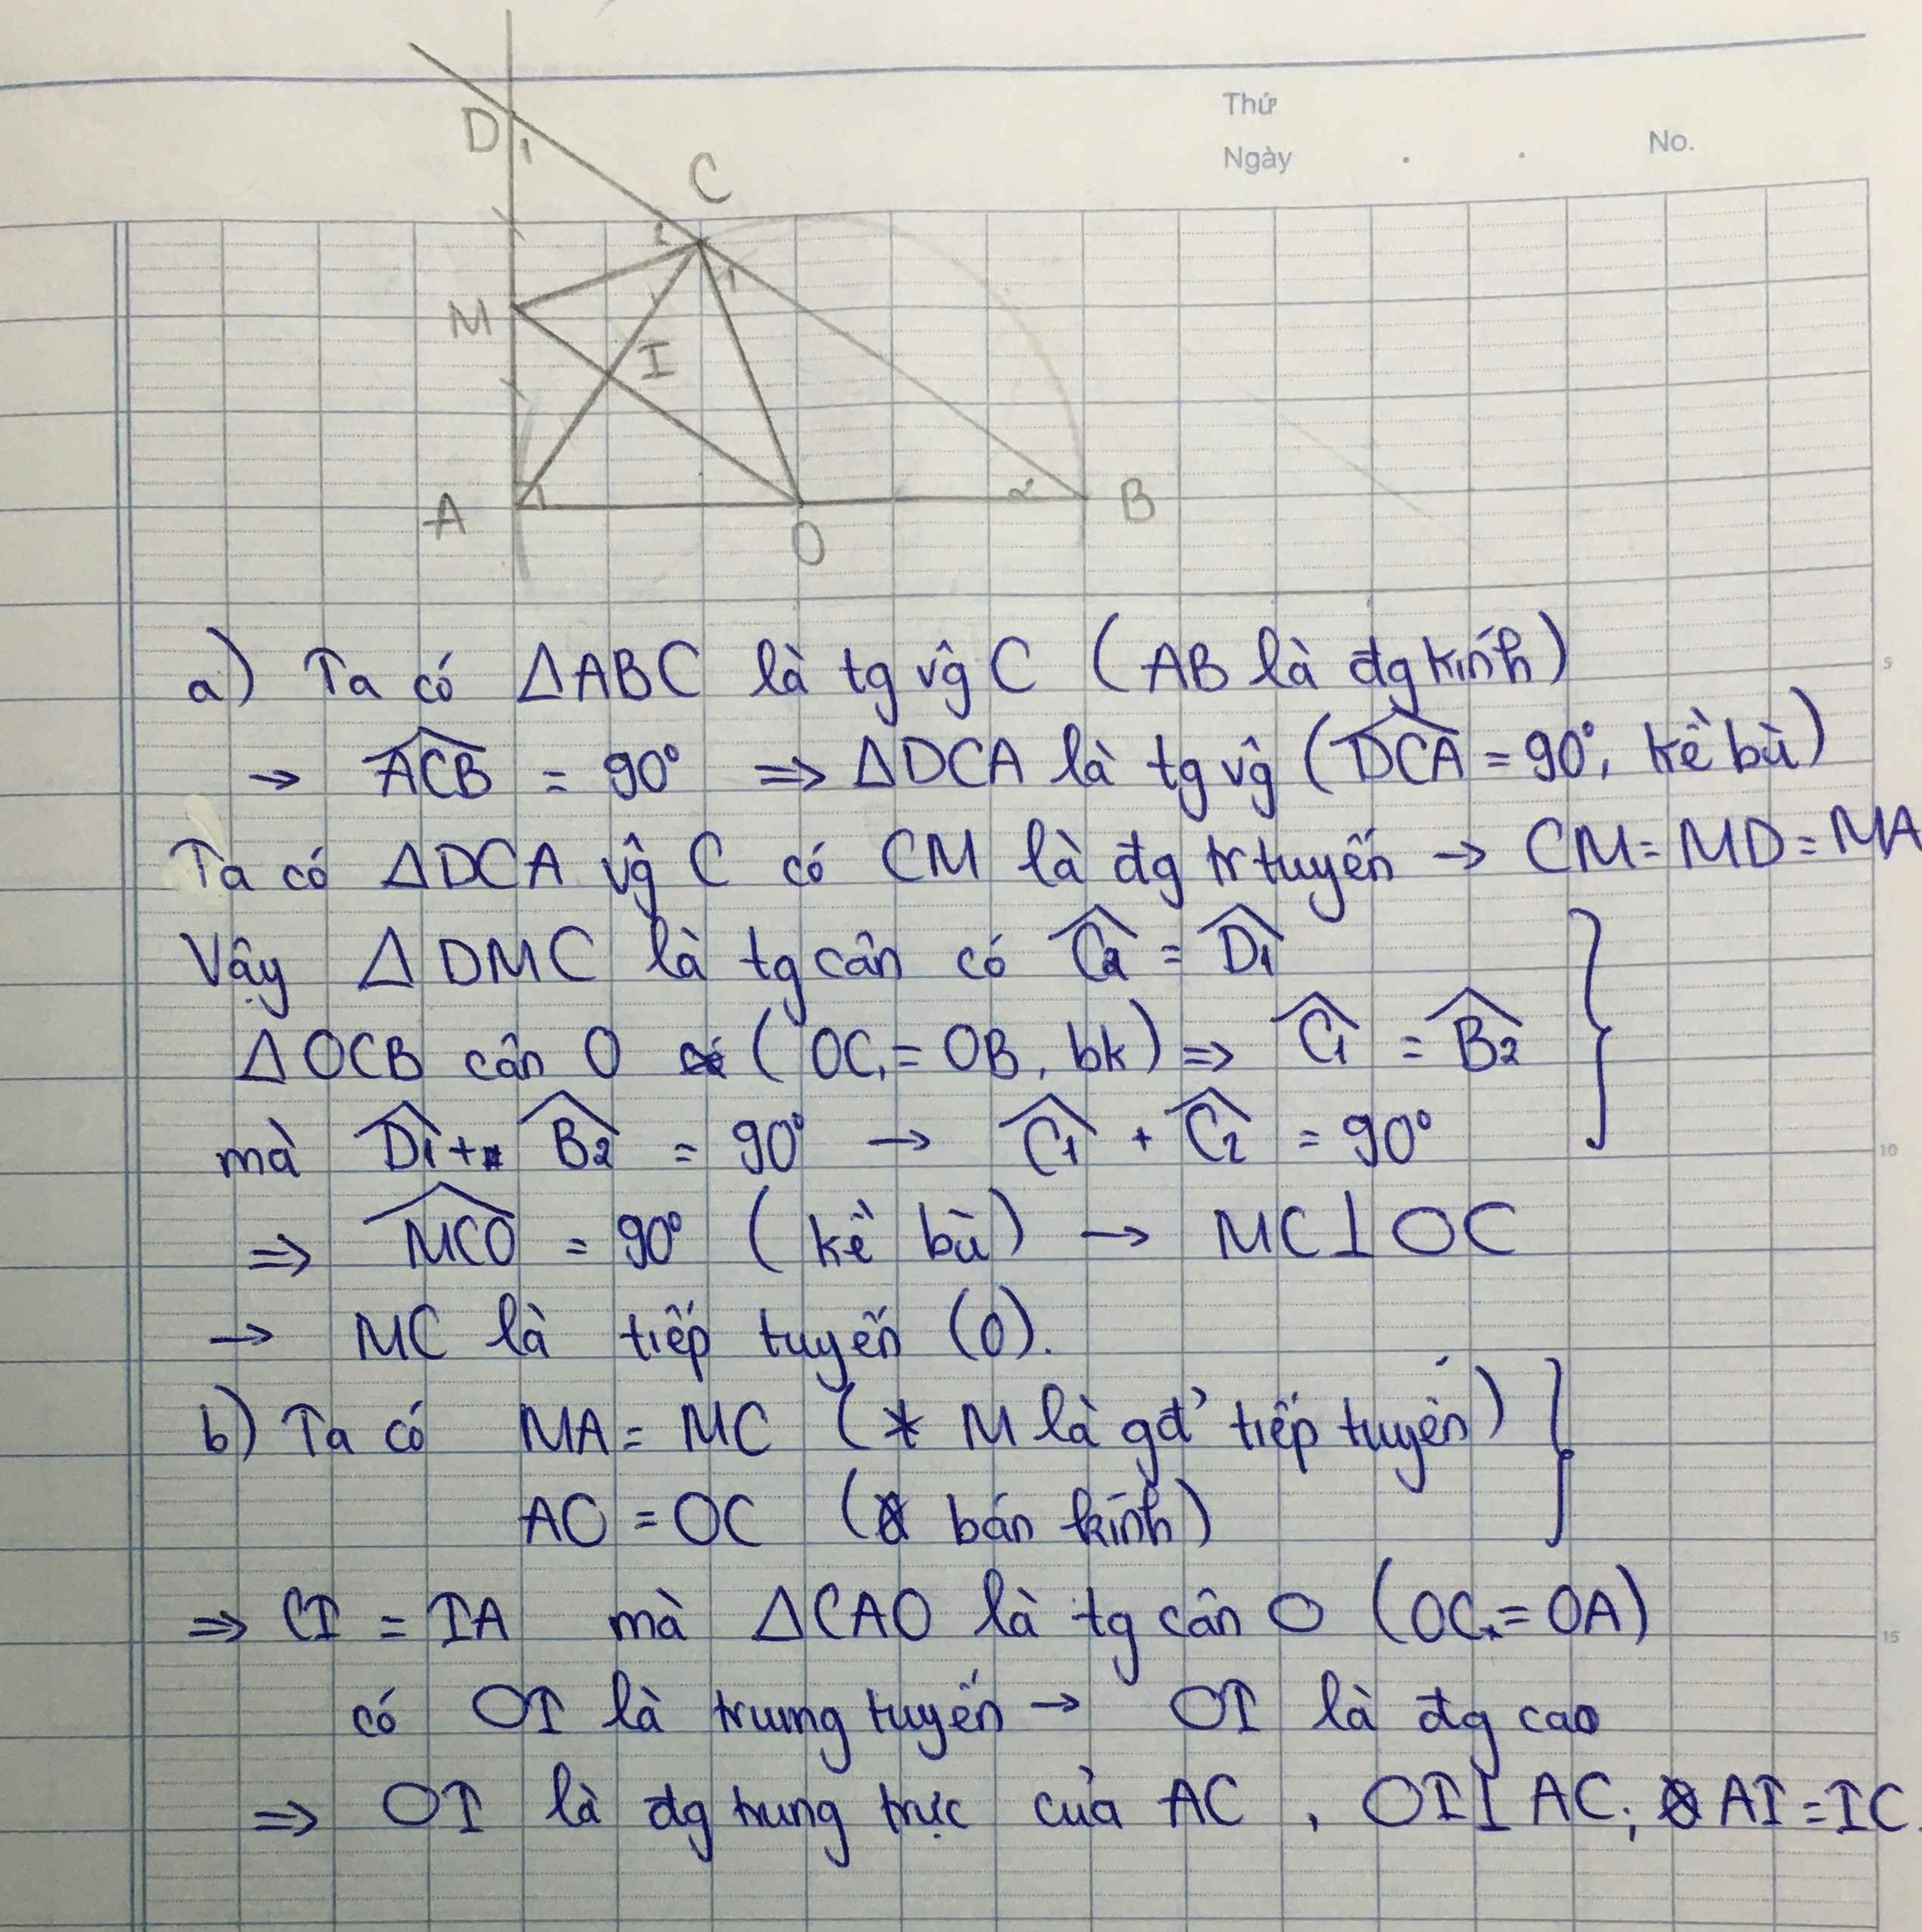 Thứ
Ngày . . No.
D 1
C
2
1
M
I
A 1
O
2 B
a) Ta có ΔABC là tg vg C (AB là đg kính)
5
→ \widehat{ACB} = 90° ⇒ ΔDCA là tg vg (\widehat{DCA} = 90°, kề bù)
Ta có ΔDCA vg C có CM là đg tr tuyến → CM = MD = MA
Vậy ΔDMC là tg cân có \widehat{C2} = \widehat{D1}
ΔOCB cân O (OC = OB, bk) ⇒ \widehat{C1} = \widehat{B2}
mà \widehat{D1} + \widehat{B2} = 90° → \widehat{C1} + \widehat{C2} = 90°
10
⇒ \widehat{MCO} = 90° (kề bù) → MC ⊥ OC
→ MC là tiếp tuyến (O).
b) Ta có MA = MC (* M là gđ' tiếp tuyến)
AO = OC (bán kính)
⇒ CI = IA mà ΔCAO là tg cân O (OC = OA)
15
có OI là trung tuyến → OI là đg cao
⇒ OI là đg trung trực của AC, OI ⊥ AC; AI = IC.